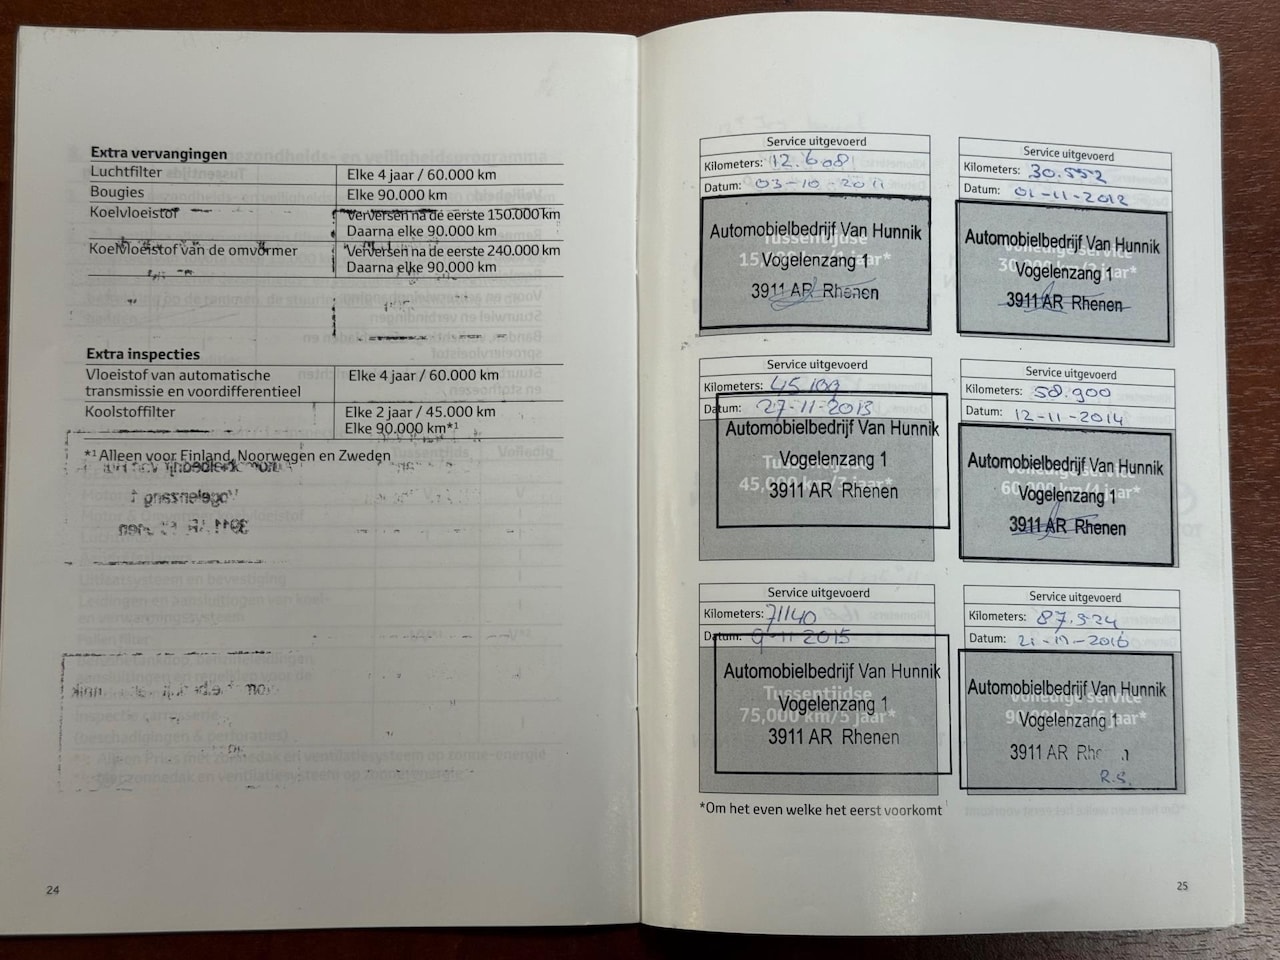 Extra vervangingen
Luchtfilter Elke 4 jaar / 60.000 km
Bougies Elke 90.000 km
Koelvloeistof Verversen na de eerste 150.000 km
Daarna elke 90.000 km
Koelvloeistof van de omvormer Verversen na de eerste 240.000 km
Daarna elke 90.000 km
Extra inspecties
Vloeistof van automatische Elke 4 jaar / 60.000 km
transmissie en voordifferentieel
Koolstoffilter Elke 2 jaar / 45.000 km
Elke 90.000 km*¹
*¹ Alleen voor Finland, Noorwegen en Zweden
24
Service uitgevoerd
Kilometers: 12.608
Datum: 03-10-2011
Automobielbedrijf Van Hunnik
Tussentijdse
Vogelenzang 1
3911 AR Rhenen
Service uitgevoerd
Kilometers: 30.552
Datum: 01-11-2012
Automobielbedrijf Van Hunnik
Volledige service
30,000 km/2 jaar*
Vogelenzang 1
3911 AR Rhenen
Service uitgevoerd
Kilometers:
Datum: 27-11-2013
Automobielbedrijf Van Hunnik
Vogelenzang 1
Tussentijdse
45,000 km/3 jaar*
3911 AR Rhenen
Service uitgevoerd
Kilometers: 58.900
Datum: 12-11-2014
Automobielbedrijf Van Hunnik
Volledige service
60,000 km/4 jaar*
Vogelenzang 1
3911 AR Rhenen
Service uitgevoerd
Kilometers: 71140
Datum: 9-11-2015
Automobielbedrijf Van Hunnik
Tussentijdse
Vogelenzang 1
75,000 km/5 jaar*
3911 AR Rhenen
Service uitgevoerd
Kilometers: 87.324
Datum: 21-11-2016
Automobielbedrijf Van Hunnik
Volledige service
Vogelenzang 1
3911 AR
R.S.
*Om het even welke het eerst voorkomt
25